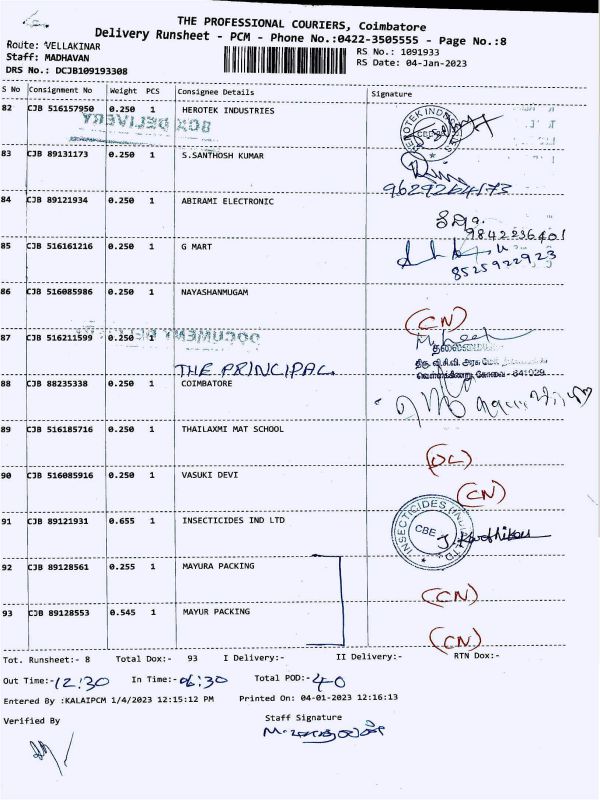 THE PROFESSIONAL COURIERS, Coimbatore
Delivery Runsheet - PCM - Phone No.:0422-3505555 - Page No.:8
Route: VELLAKINAR
RS No.: 1091933
Staff: MADHAVAN
RS Date: 04-Jan-2023
DRS No.: DCJB109193308
S No Consignment No Weight PCS Consignee Details Signature
82 CJB 516157950 0.250 1 HEROTEK INDUSTRIES
BOX DELIVERY
CBE
83 CJB 89131173 0.250 1 S.SANTHOSH KUMAR
9629264173
84 CJB 89121934 0.250 1 ABIRAMI ELECTRONIC
9842236401
85 CJB 516161216 0.250 1 G MART
8525922923
86 CJB 516085986 0.250 1 NAYASHANMUGAM
(CN)
87 CJB 516211599 0.250 1
THE PRINCIPAL
வெள்ளக்கிணறு, கோவை - 641029
88 CJB 88235338 0.250 1 COIMBATORE
89 CJB 516185716 0.250 1 THAILAXMI MAT SCHOOL
(DL)
90 CJB 516085916 0.250 1 VASUKI DEVI
(CN)
91 CJB 89121931 0.655 1 INSECTICIDES IND LTD
INSECTICIDES (INDIA) LTD
CBE
92 CJB 89128561 0.255 1 MAYURA PACKING
(CN)
93 CJB 89128553 0.545 1 MAYUR PACKING
(CN)
Tot. Runsheet:- 8 Total Dox:- 93 I Delivery:- II Delivery:- RTN Dox:-
Out Time:- 12:30 In Time:- 06:30 Total POD:- 40
Entered By :KALAIPCM 1/4/2023 12:15:12 PM Printed On: 04-01-2023 12:16:13
Verified By Staff Signature